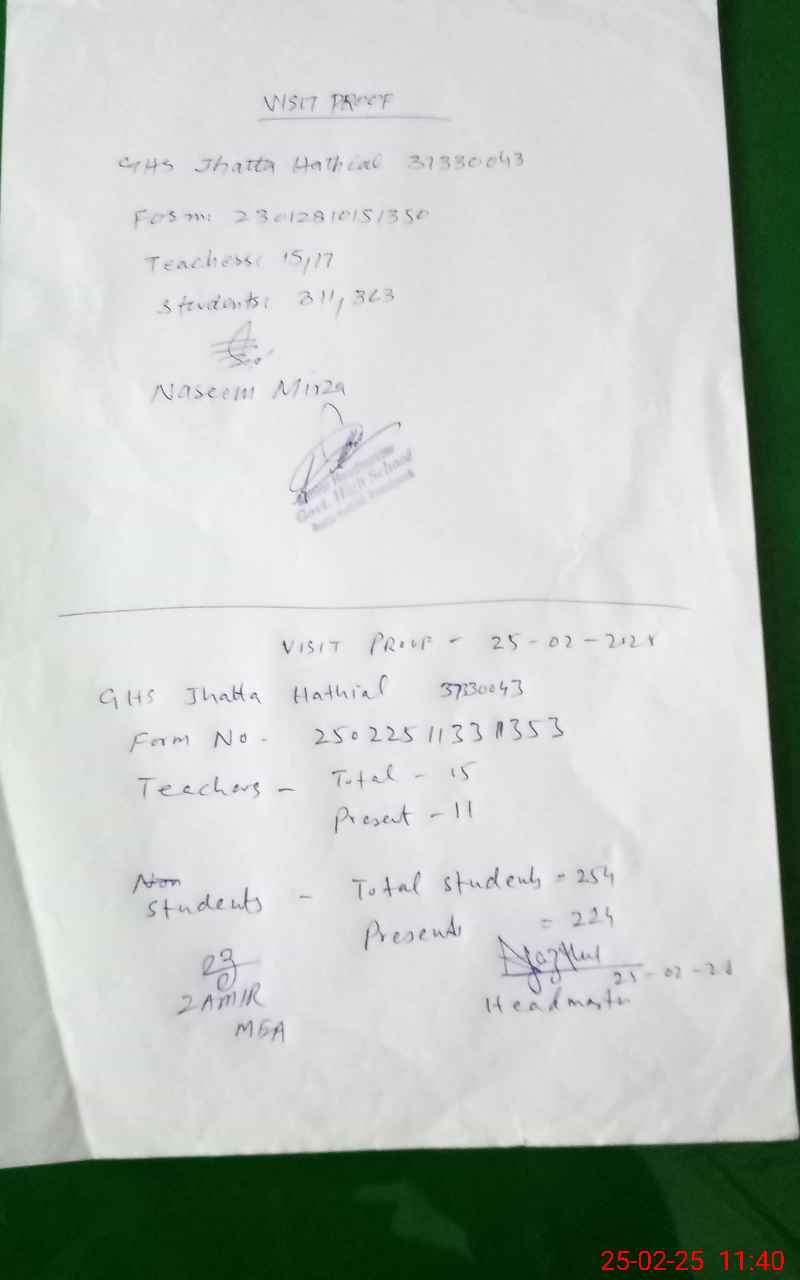 VISIT PROOF
GHS Jhatta Hathial 37330043
Form: 23012810151350
Teachers: 15,17
Students: 311, 363
Naseem Mirza
Govt. High School
VISIT PROOF - 25-02-2025
GHS Jhatta Hathial 37330043
Form No - 250225113311353
Teachers - Total - 15
Present - 11
Non
Students - Total students = 254
Presents = 224
ZAMIR
MEA
25-02-25
Headmaster
25-02-25 11:40